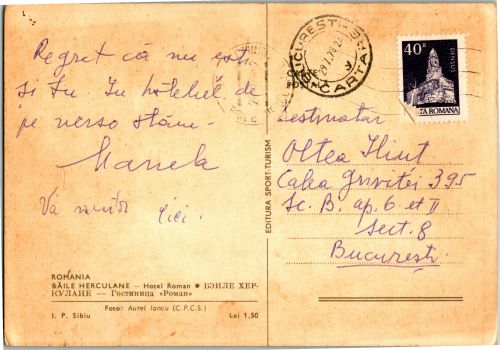 Regret că nu ești
și tu. In hotelul de
pe verso stăm.
Manela
Va sărută Lici.
ROMANIA
BĂILE HERCULANE — Hotel Roman ● БЭИЛЕ ХЕР-
КУЛАНЕ — Гостиница «Роман»
Foto: Aurel Iancu (C.P.C.S.)
I. P. Sibiu Lei 1,50
EDITURA SPORT-TURISM
BUCUREȘTI
CARTARE
40
DENSUȘ
TA ROMANA
Destinatar
Oltea
Calea Griviței 395
Sc. B. ap. 6 et II
Sect. 8
București